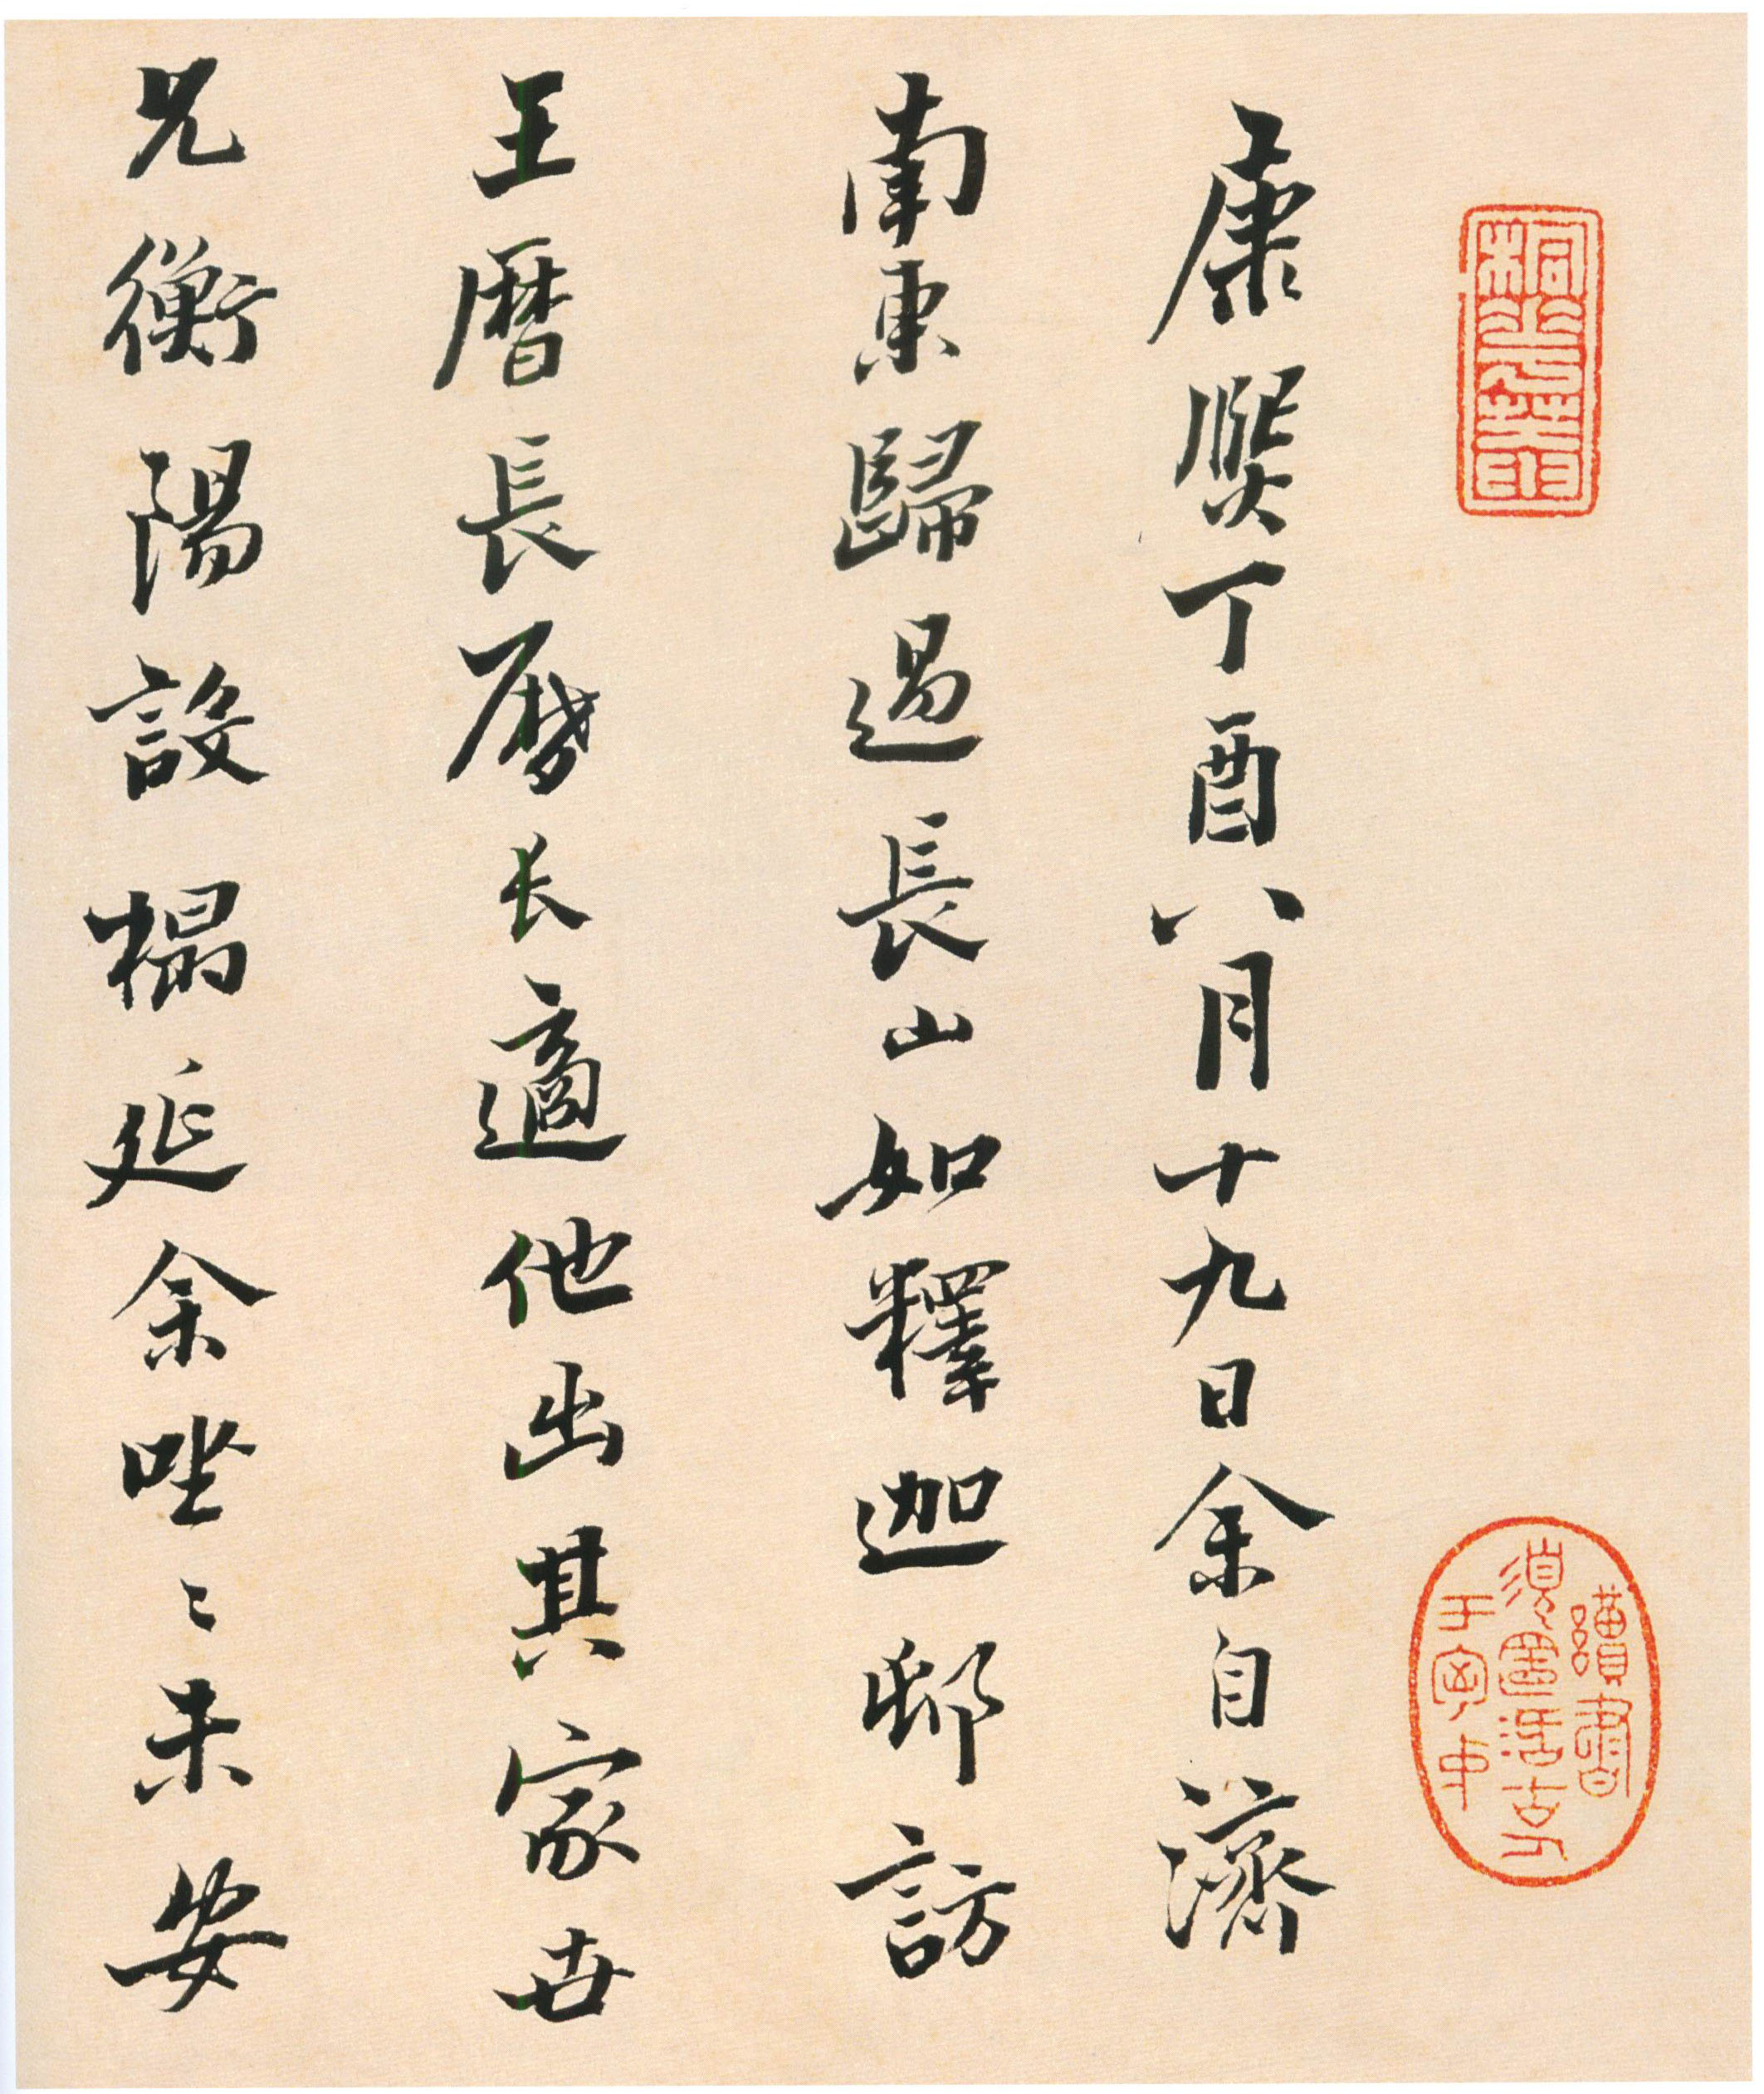 康熙丁酉八月十九日余自濟
南東歸過長山如釋迦邨訪
王暦長暦长適他出其家世
兄衡陽設榻延余坐〻未安